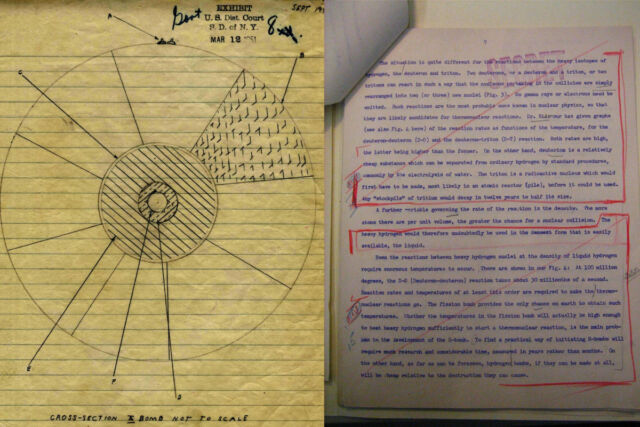 A
EXHIBIT
U. S. Dist. Court
S. D. of N. Y.
MAR 12 1951
Govt
8
SEPT 19
B
C
E
F
D
CROSS-SECTION A BOMB NOT TO SCALE
The situation is quite different for the reactions between the heavy isotopes of
hydrogen, the deuteron and triton. Two deuterons, or a deuteron and a triton, or two
tritons can react in such a way that the nucleons pertaining in the collision are simply
rearranged into two (or three) new nuclei (Fig. 3). No gamma rays or electrons need be
emitted. Such reactions are the most probable ones known in nuclear physics, so that
they are likely candidates for thermonuclear reactions. Dr. Ridenour has given graphs
(see also Fig. 4 here) of the reaction rates as functions of the temperature, for the
deuteron-deuteron (D-D) and the deuteron-triton (D-T) reaction. Both rates are high,
the latter being higher than the former. On the other hand, deuterium is a relatively
cheap substance which can be separated from ordinary hydrogen by standard procedures,
commonly by the electrolysis of water. The triton is a radioactive nucleus which would
first have to be made, most likely in an atomic reactor (pile), before it could be used.
Any "stockpile" of tritium would decay in twelve years to half its size.
A further variable governing the rate of the reaction is the density. The more
atoms there are per unit volume, the greater the chance for a nuclear collision. The
heavy hydrogen would therefore undoubtedly be used in the densest form that is easily
available, the liquid.
Even the reactions between heavy hydrogen nuclei at the density of liquid hydrogen
require enormous temperatures to occur. These are shown in our Fig. 4: At 100 million
degrees, the D-D (Deuteron-deuteron) reaction takes about 30 millionths of a second.
Reaction rates and temperatures of at least this order are required to make the thermo-
nuclear reactions go. The fission bomb provides the only chance on earth to obtain such
temperatures. Whether the temperatures in the fission bomb will actually be high enough
to heat heavy hydrogen sufficiently to start a thermonuclear reaction, is the main prob-
lem in the development of the H-bomb. To find a practical way of initiating H-bombs will
require much research and considerable time, measured in years rather than months. On
the other hand, as far as can be foreseen, hydrogen bombs, if they can be made at all,
will be cheap relative to the destruction they can cause.